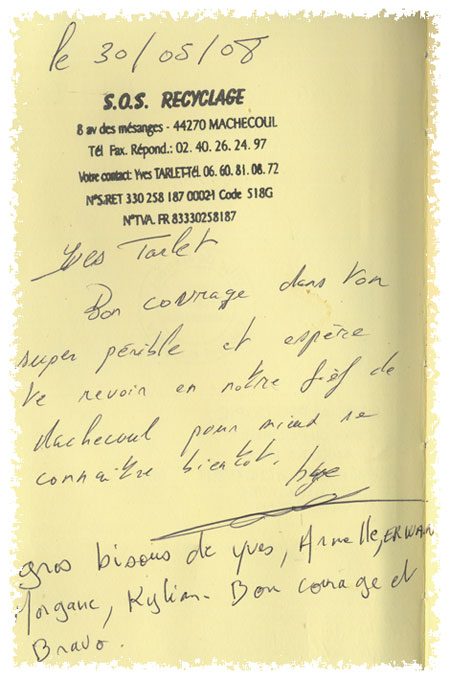 le 30/05/08
S.O.S. RECYCLAGE
8 av des mésanges - 44270 MACHECOUL
Tél Fax. Répond.: 02. 40. 26. 24. 97
Votre contact: Yves TARLET-Tél. 06. 60. 81. 08. 72
N°SIRET 330 258 187 00021 Code 518G
N°TVA. FR 83330258187
Yves Tarlet
Bon courage dans ton
super périble et espère
te revoir en notre fief de
Machecoul pour mieux se
connaître bientôt.
gros bisous de yves, Armelle, ERWAN
Morgane, Kylian. Bon courage et
Bravo.